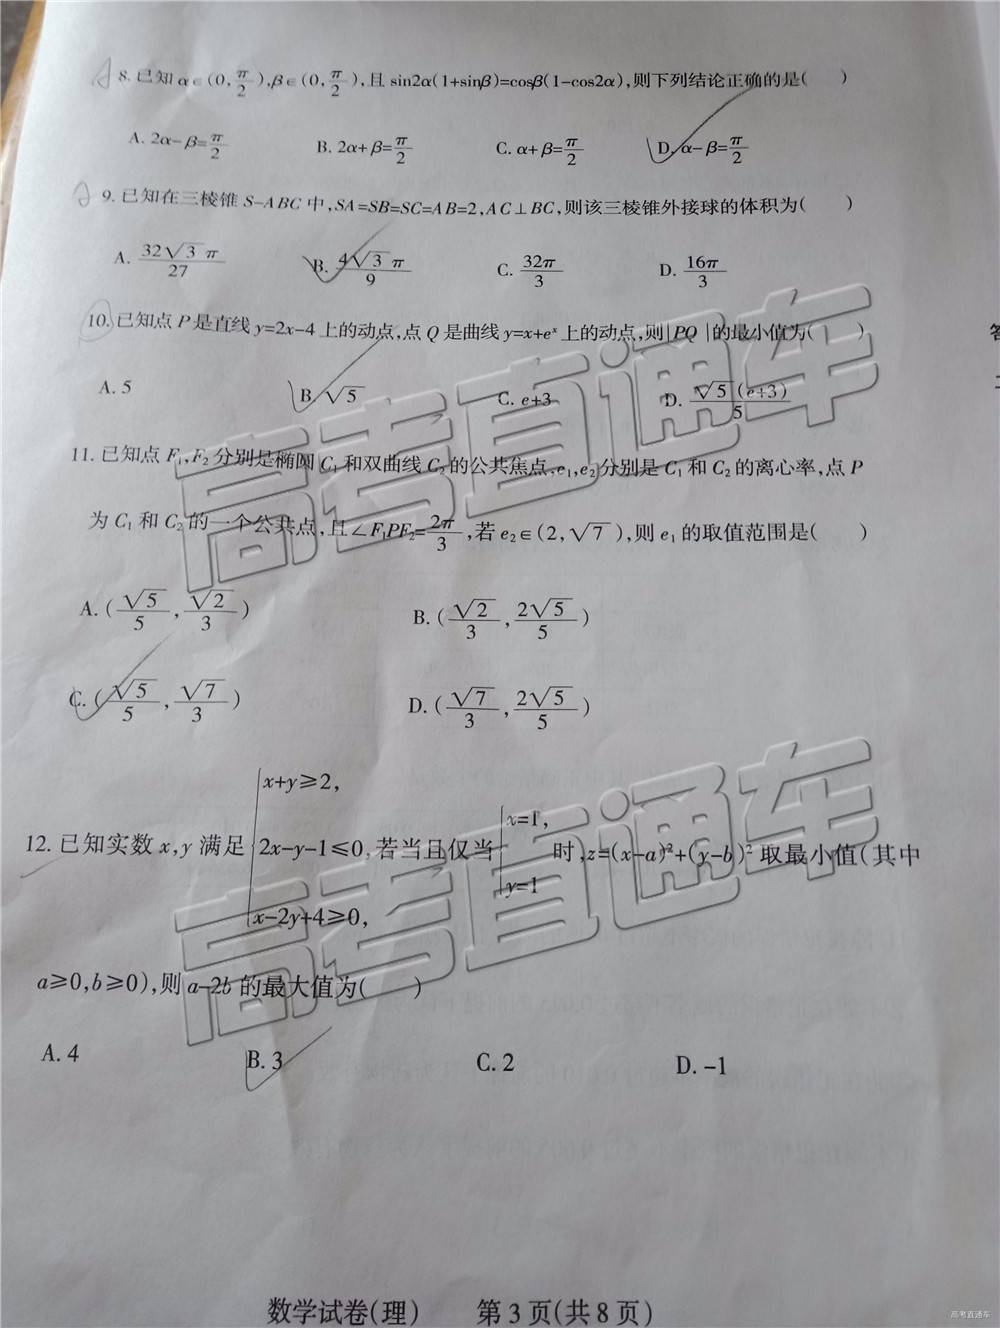 8. 已知 α∈(0, π/2), β∈(0, π/2), 且 sin2α(1+sinβ)=cosβ(1-cos2α), 则下列结论正确的是( )
A. 2α-β=π/2 B. 2α+β=π/2 C. α+β=π/2 D. α-β=π/2
9. 已知在三棱锥 S-ABC 中, SA=SB=SC=AB=2, AC⊥BC, 则该三棱锥外接球的体积为( )
A. 32√3π/27 B. 4√3π/9 C. 32π/3 D. 16π/3
10. 已知点 P 是直线 y=2x-4 上的动点, 点 Q 是曲线 y=x+eˣ 上的动点, 则|PQ|的最小值为( )
A. 5 B. √5 C. e+3 D. √5(e+3)/5
11. 已知点 F₁,F₂ 分别是椭圆 C₁ 和双曲线 C₂ 的公共焦点, e₁,e₂ 分别是 C₁ 和 C₂ 的离心率, 点 P
为 C₁ 和 C₂ 的一个公共点, 且∠F₁PF₂=2π/3, 若 e₂∈(2, √7), 则 e₁ 的取值范围是( )
A. (√5/5, √2/3) B. (√2/3, 2√5/5)
C. (√5/5, √7/3) D. (√7/3, 2√5/5)
12. 已知实数 x,y 满足 { x+y≥2, 2x-y-1≤0, x-2y+4≥0, 若当且仅当 { x=1, y=1 时, z=(x-a)²+(y-b)² 取最小值(其中
a≥0, b≥0), 则 a-2b 的最大值为( )
A. 4 B. 3 C. 2 D. -1
数学试卷(理) 第 3 页(共 8 页)
高考直通车
高考直通车
高考直通车